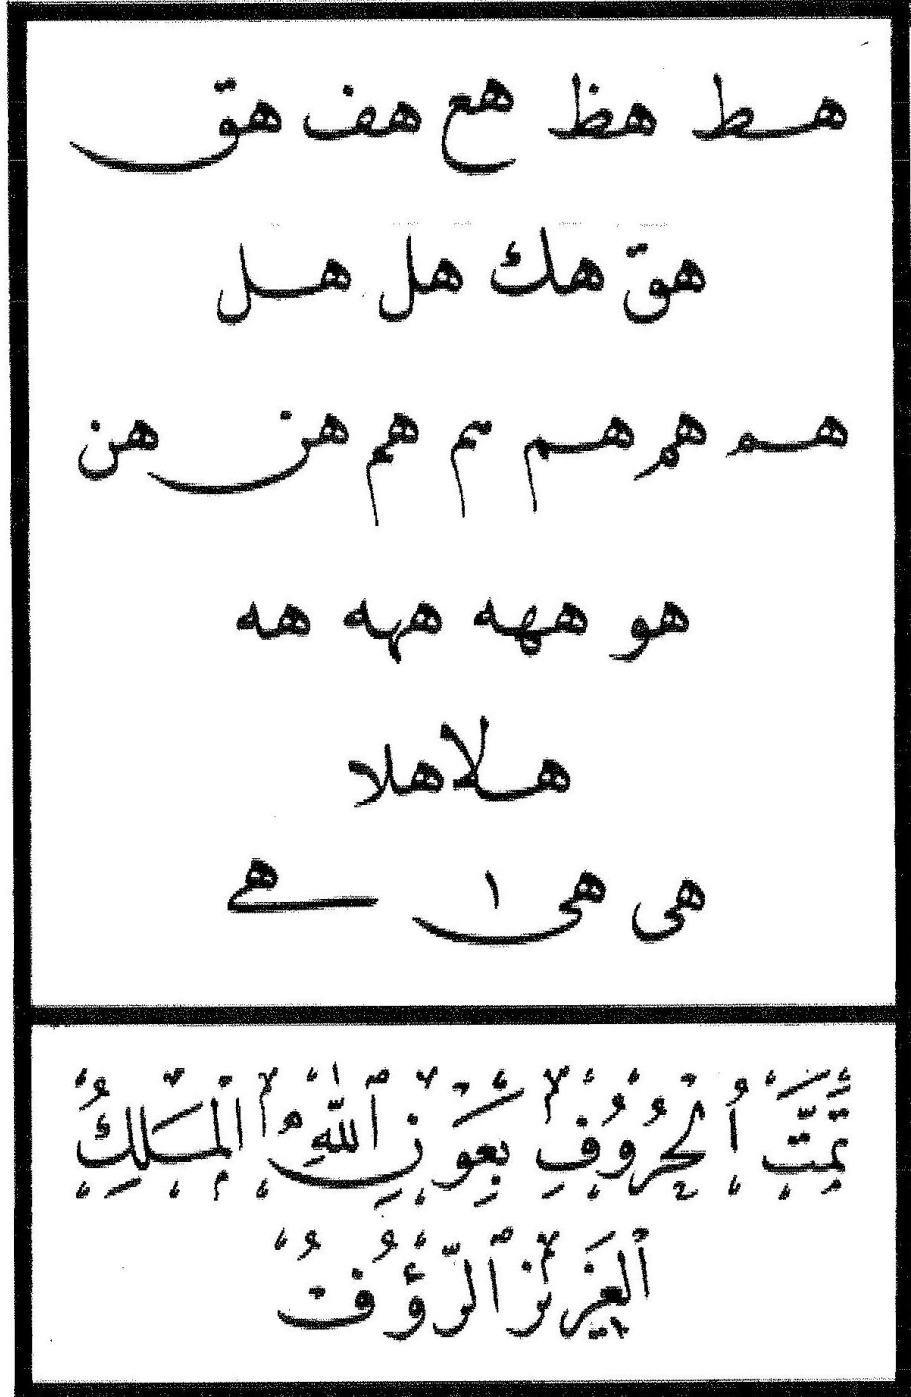 هط هظ هع هف هق
هق هك هل هل
هم هم هم هم هم هن هن
هو ههه ههه هه
هلا هلا
هى هى ١ هے
تَمَّتِ ٱلْحُرُوفُ بِعَوْنِ ٱللّٰهِ ٱلْمَلِكِ
ٱلْعَزِيزِ ٱلرَّؤُفِ